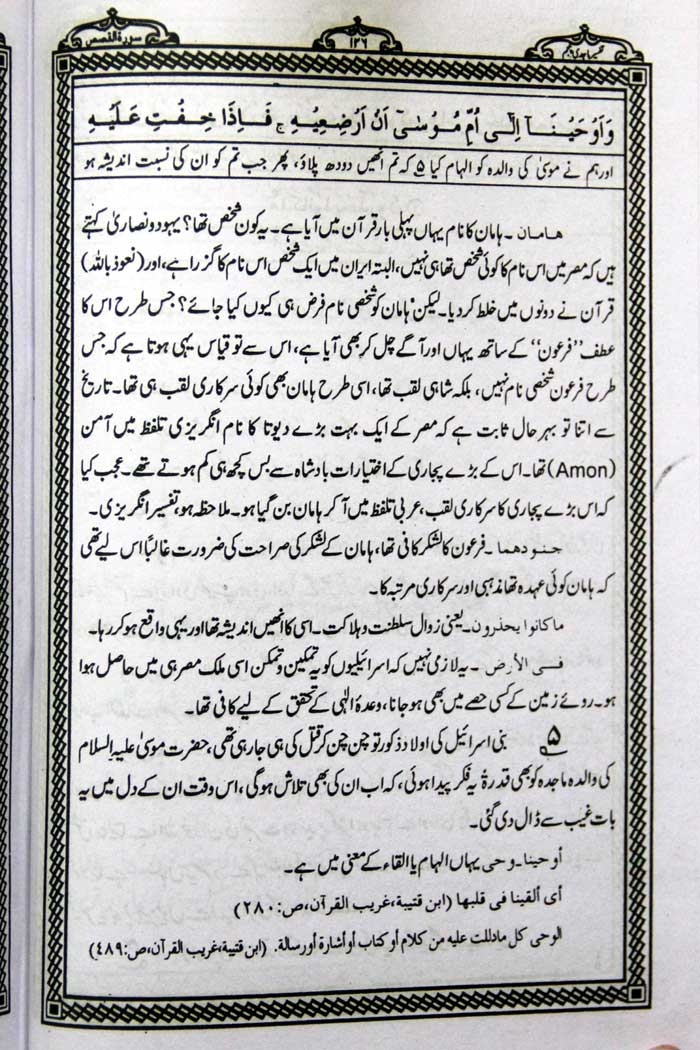 سورة القصص
۱۳۶
تفسیر ماجدی پنجم
وَاَوْحَیْنَاۤ اِلٰۤی اُمِّ مُوْسٰۤی اَنْ اَرْضِعِیْهِ ۚ فَاِذَا خِفْتِ عَلَیْهِ
اور ہم نے موسیٰ کی والدہ کو الہام کیا ۵ کہ تم انھیں دودھ پلاؤ، پھر جب تم کو ان کی نسبت اندیشہ ہو
هامان۔ ہامان کا نام یہاں پہلی بار قرآن میں آیا ہے۔ یہ کون شخص تھا؟ یہود و نصاریٰ کہتے
ہیں کہ مصر میں اس نام کا کوئی شخص تھا ہی نہیں، البتہ ایران میں ایک شخص اس نام کا گزرا ہے، اور (نعوذ باللہ)
قرآن نے دونوں میں خلط کر دیا۔ لیکن ہامان کو شخصی نام فرض ہی کیوں کیا جائے؟ جس طرح اس کا
عطف ”فرعون“ کے ساتھ یہاں اور آگے چل کر بھی آیا ہے، اس سے تو قیاس یہی ہوتا ہے کہ جس
طرح فرعون شخصی نام نہیں، بلکہ شاہی لقب تھا، اسی طرح ہامان بھی کوئی سرکاری لقب ہی تھا۔ تاریخ
سے اتنا تو بہر حال ثابت ہے کہ مصر کے ایک بہت بڑے دیوتا کا نام انگریزی تلفظ میں آمن
(Amon) تھا۔ اس کے بڑے پجاری کے اختیارات بادشاہ سے بس کچھ ہی کم ہوتے تھے۔ عجب کیا
کہ اس بڑے پجاری کا سرکاری لقب، عربی تلفظ میں آ کر ہامان بن گیا ہو۔ ملاحظہ ہو، تفسیر انگریزی۔
جنودهما۔ فرعون کا لشکر کافی تھا، ہامان کے لشکر کی صراحت کی ضرورت غالباً اس لیے تھی
کہ ہامان کوئی عہدہ تھا مذہبی اور سرکاری مرتبہ کا۔
ماکانوا یحذرون۔ یعنی زوال سلطنت و ہلاکت۔ اسی کا انھیں اندیشہ تھا اور یہی واقع ہو کر رہا۔
فی الأرض۔ یہ لازمی نہیں کہ اسرائیلیوں کو یہ تمکین و تمکن اسی ملک مصر ہی میں حاصل ہوا
ہو۔ روئے زمین کے کسی حصے میں بھی ہو جانا، وعدۂ الٰہی کے تحقق کے لیے کافی تھا۔
۵ بنی اسرائیل کی اولاد ذکور تو چن چن کر قتل کی ہی جا رہی تھی، حضرت موسیٰ علیہ السلام
کی والدہ ماجدہ کو بھی قدرۃً یہ فکر پیدا ہوئی، کہ اب ان کی بھی تلاش ہوگی، اس وقت ان کے دل میں یہ
بات غیب سے ڈال دی گئی۔
أوحینا۔ وحی یہاں الہام یا القاء کے معنی میں ہے۔
أی ألقینا فی قلبها (ابن قتیبة، غریب القرآن، ص: ۲۸۰)
الوحی کل مادللت علیه من کلام أو کتاب أو أشارة أو رسالة. (ابن قتیبة، غریب القرآن، ص: ۴۸۹)